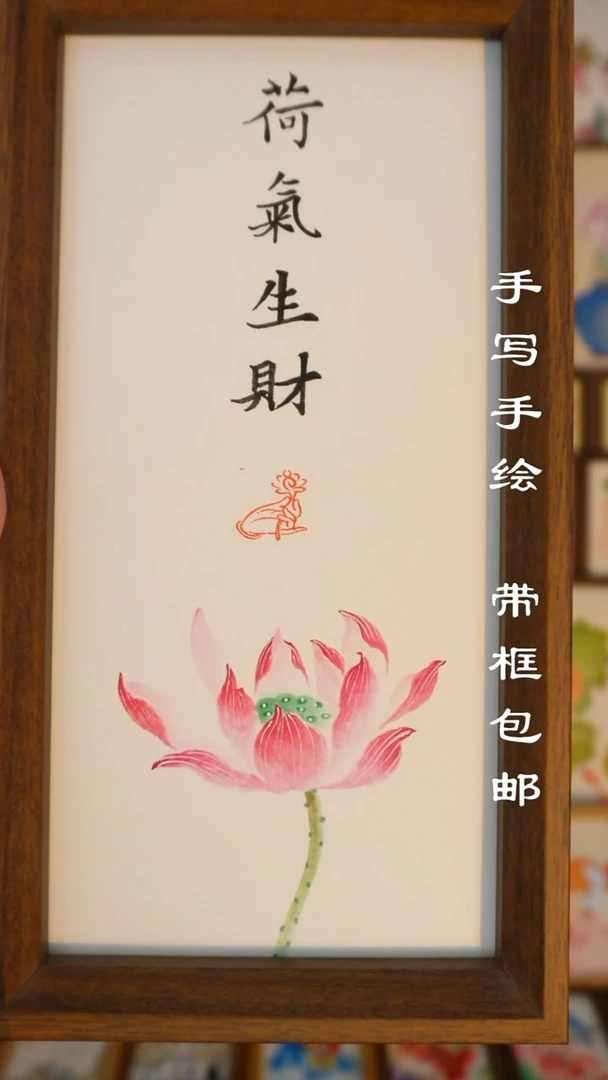 荷氣生財
手写手绘 带框包邮